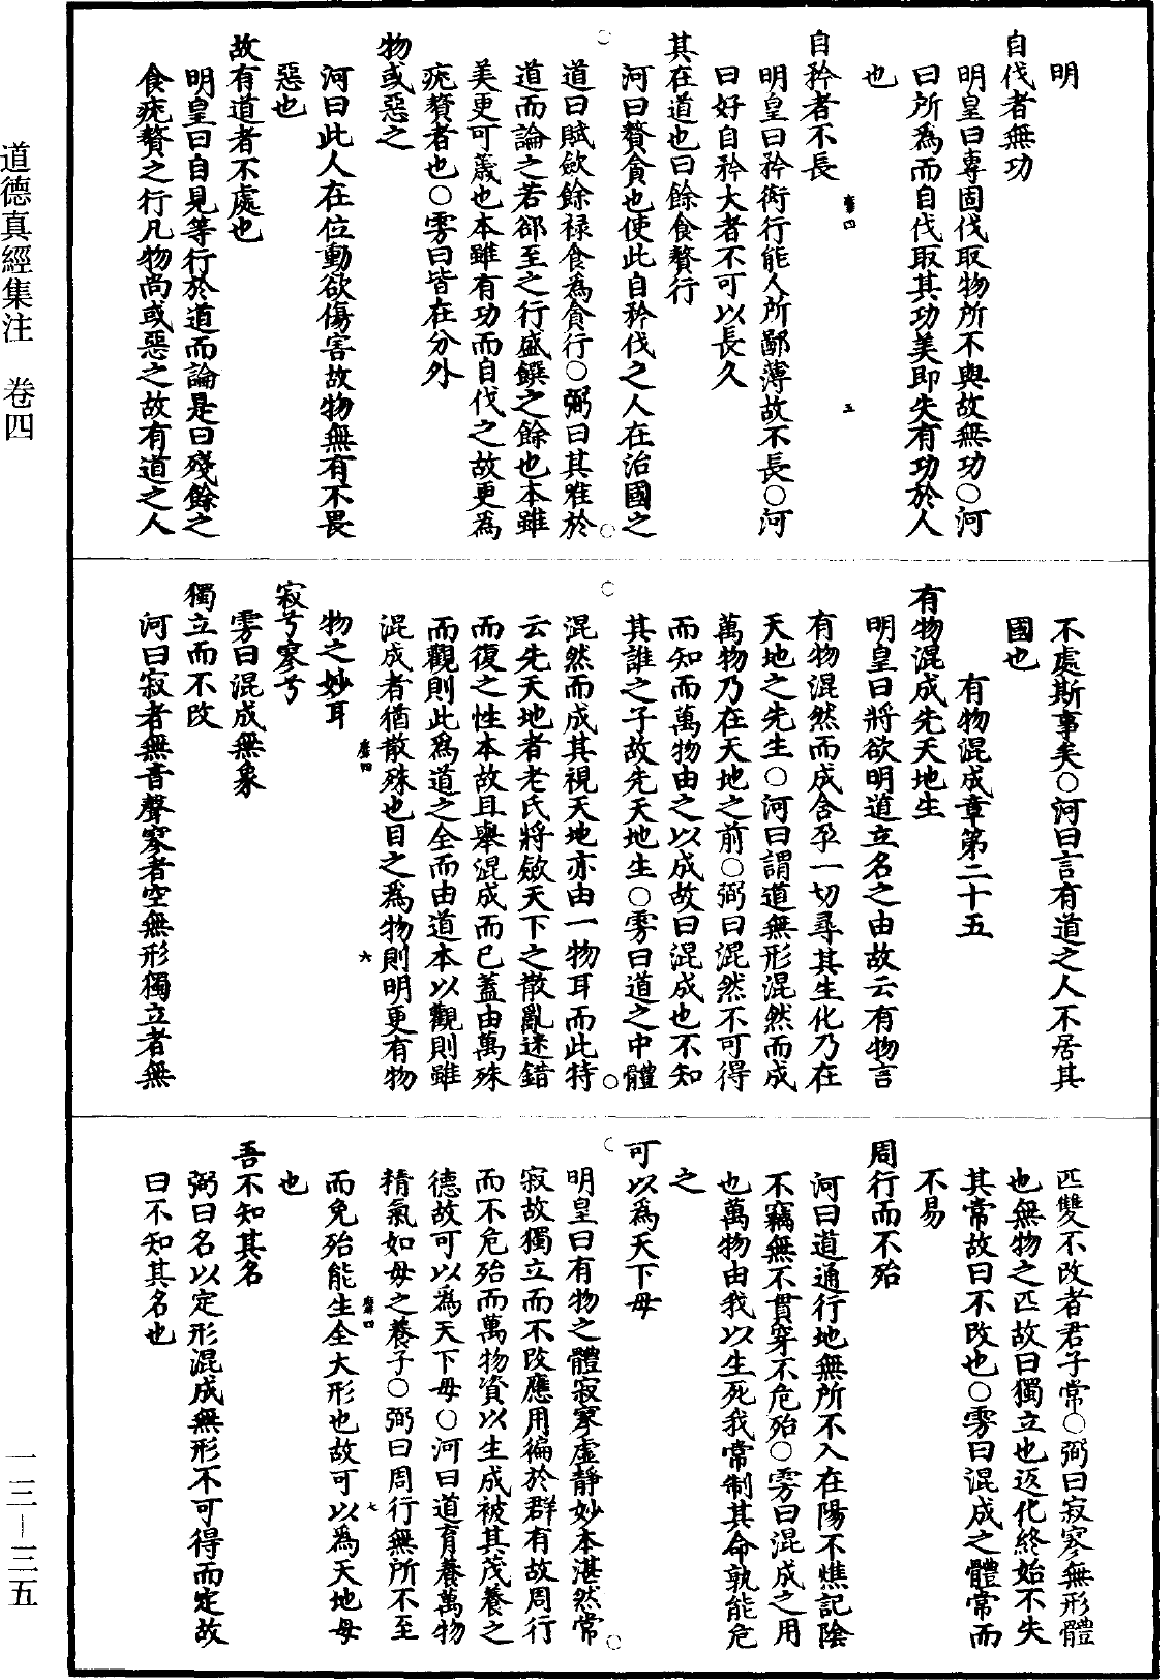 道德真經集注　卷四
明
自伐者無功
明皇曰專固伐取物所不與故無功○河
曰所爲而自伐取其功美即失有功於人
也
自矜者不長
明皇曰矜衒行能人所鄙薄故不長○河
曰好自矜大者不可以長久
其在道也曰餘食贅行
河曰贅貪也使此自矜伐之人在治國之
道曰賦斂餘祿食爲貪行○弼曰其唯於
道而論之若郤至之行盛饌之餘也本雖
美更可薉也本雖有功而自伐之故更爲
疣贅者也○雱曰皆在分外
物或惡之
河曰此人在位動欲傷害故物無有不畏
惡也
故有道者不處也
明皇曰自見等行於道而論是曰殘餘之
食疣贅之行凡物尚或惡之故有道之人
不處斯事矣○河曰言有道之人不居其
國也
有物混成章第二十五
有物混成先天地生
明皇曰將欲明道立名之由故云有物言
有物混然而成含孕一切尋其生化乃在
天地之先生○河曰謂道無形混然而成
萬物乃在天地之前○弼曰混然不可得
而知而萬物由之以成故曰混成也不知
其誰之子故先天地生○雱曰道之中體
混然而成其視天地亦由一物耳而此特
云先天地者老氏將斂天下之散亂迷錯
而復之性本故且舉混成而已蓋由萬殊
而觀則此爲道之全而由道本以觀則雖
混成者猶散殊也目之爲物則明更有物
物之妙耳
寂兮寥兮
雱曰混成無象
獨立而不改
河曰寂者無音聲寥者空無形獨立者無
匹雙不改者君子常○弼曰寂寥無形體
也無物之匹故曰獨立也返化終始不失
其常故曰不改也○雱曰混成之體常而
不易
周行而不殆
河曰道通行地無所不入在陽不燋記陰
不竊無不貫穿不危殆○雱曰混成之用
也萬物由我以生死我常制其命孰能危
之
可以爲天下母
明皇曰有物之體寂寥虛靜妙本湛然常
寂故獨立而不改應用徧於群有故周行
而不危殆而萬物資以生成被其茂養之
德故可以爲天下母○河曰道育養萬物
精氣如母之養子○弼曰周行無所不至
而免殆能生全大形也故可以爲天地母
也
吾不知其名
弼曰名以定形混成無形不可得而定故
曰不知其名也
一三—三五